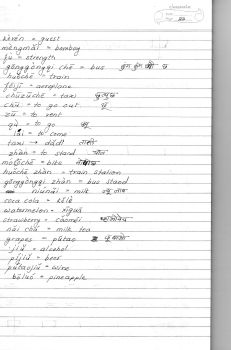 kèrén = guest
mèngmǎi = bombay
fù = strength
gōnggòngqì chē = bus
huǒchē = train
fēijī = aeroplane
chūzūchē = taxi
chū = to go out
zū = to rent
qù = to go
lái = to come
taxi → dádí
zhàn = to stand
motōchē = bike
huǒchē zhàn = train station
gōnggòngqì zhàn = bus stand
niúnǎi = milk
coca cola = kělè
watermelon = xīguā
strawberry = cǎoméi
nǎi chá = milk tea
grapes = pútao
jiǔ = alcohol
píjiǔ = beer
pútaojiǔ = wine
bōluó = pineapple